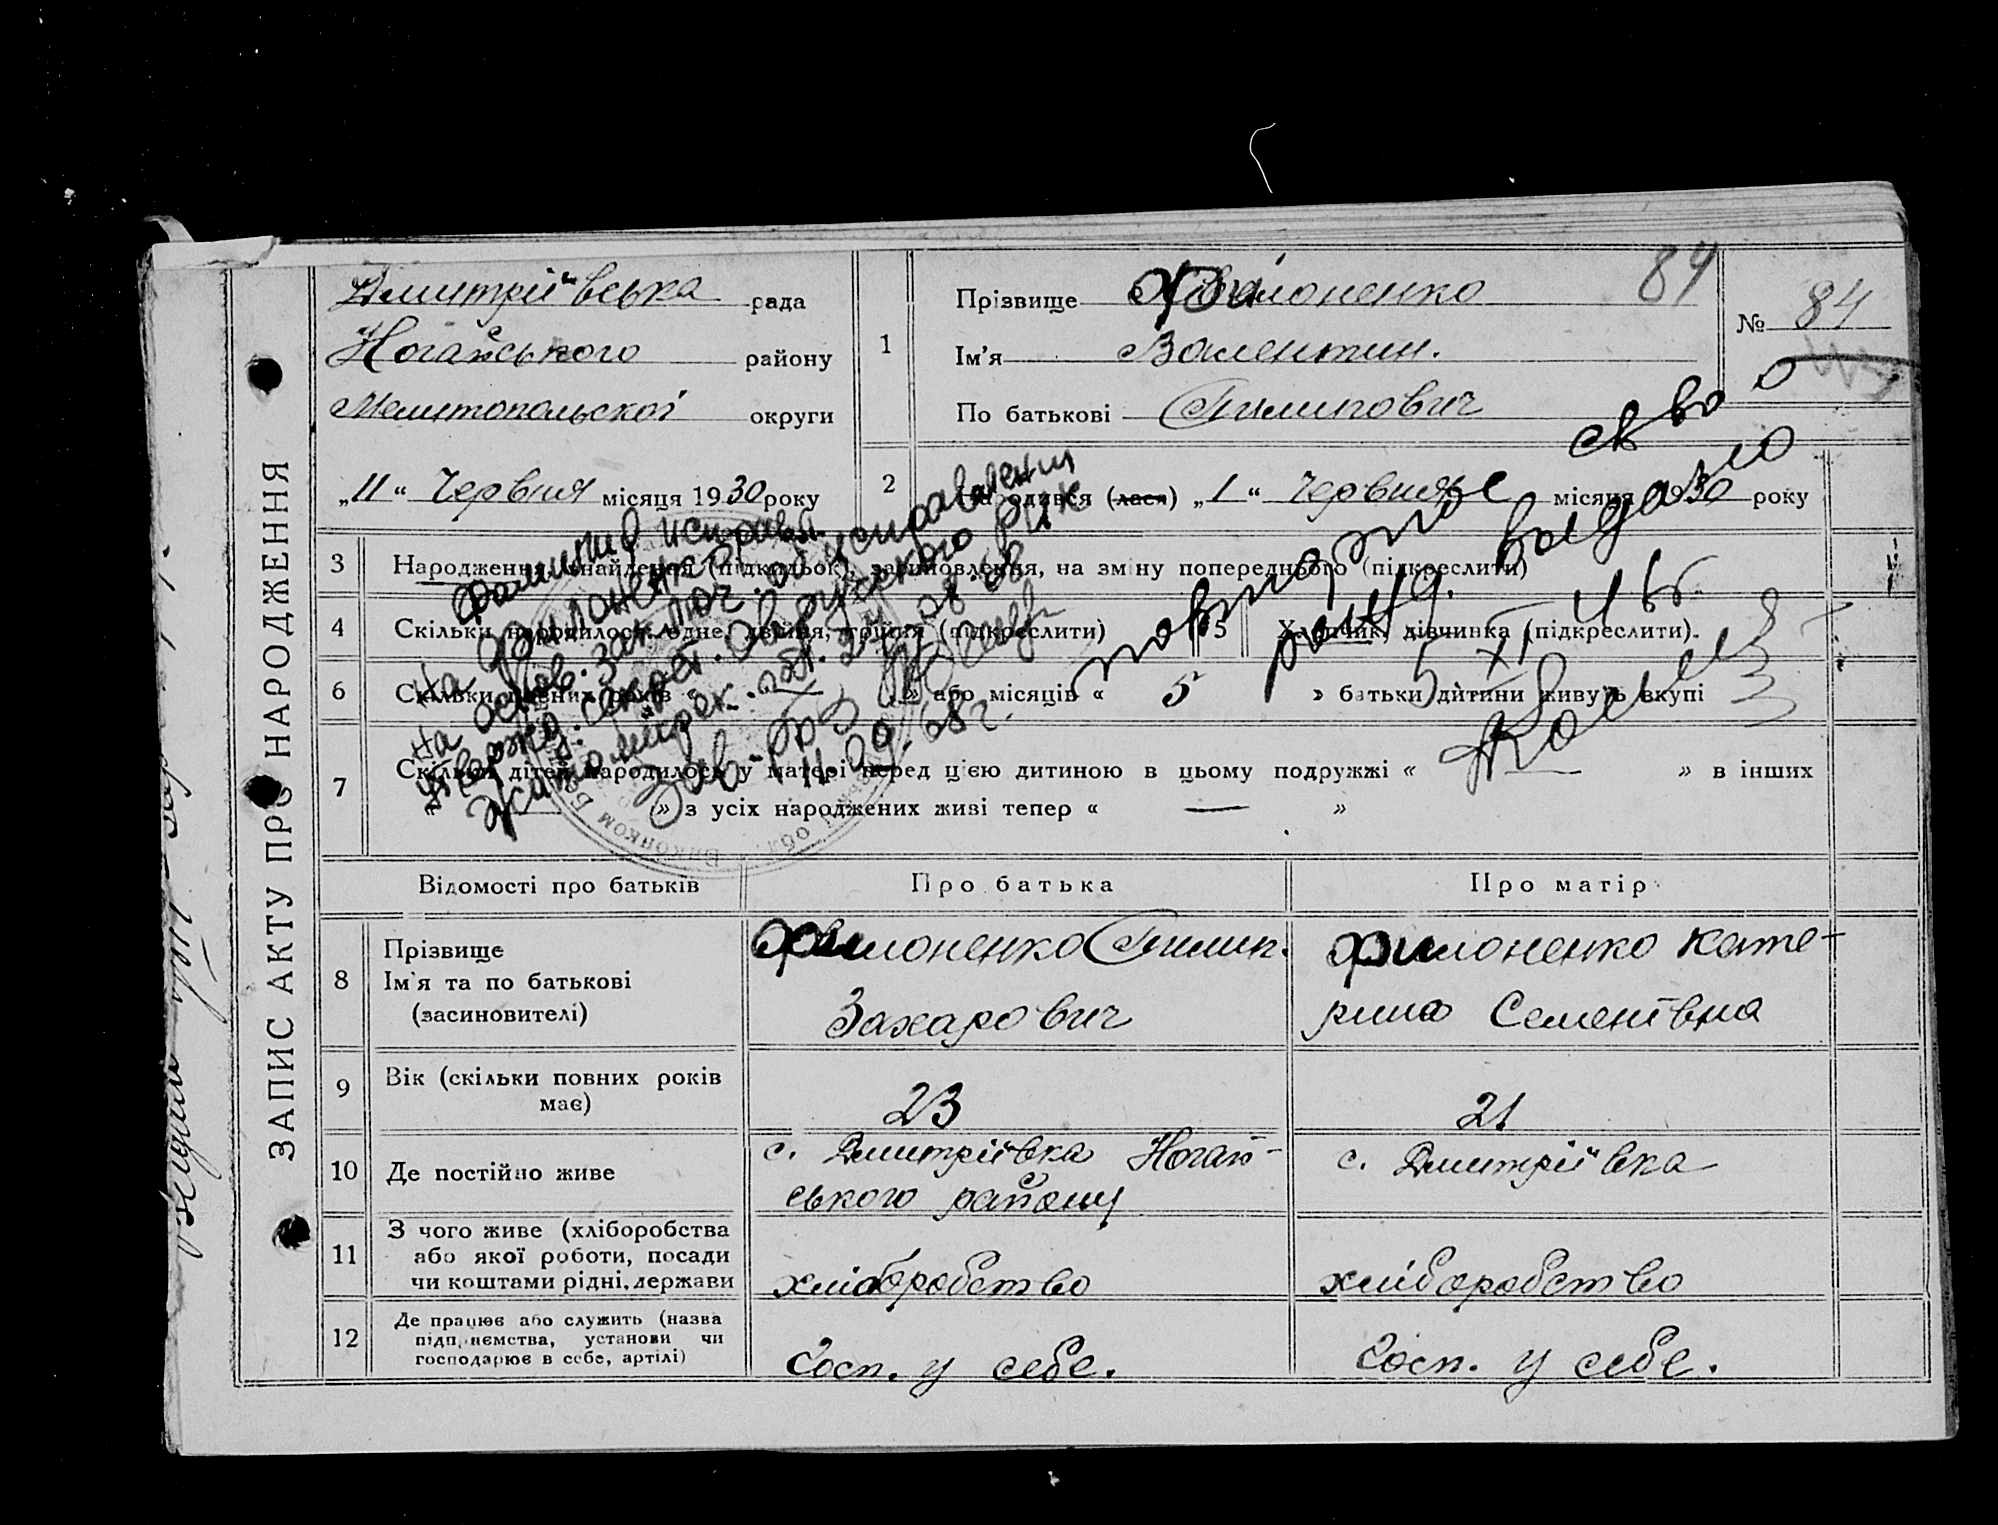 ЗАПИС АКТУ ПРО НАРОДЖЕННЯ
Дмитріївська рада
Ногайського району
Мелитопольскої округи
„11“ Червня місяця 1930 року
1
Прізвище Филоненко
Ім'я Валентин.
По батькові Пилипович
84
№ 84
2 Народився (лася) „1“ Червня місяця 1930 року
3 Народження, знайдення (підкидьок), засиновлення, на зміну попереднього (підкреслити)
4 Скільки народилося: одне, двійня, тройня (підкреслити)
5 Хлопчик, дівчинка (підкреслити).
6 Скільки повних років « — » або місяців « 5 » батьки дитини живуть вкупі
7 Скільки дітей народилось у матері перед цією дитиною в цьому подружжі « — » в інших
« — » з усіх народжених живі тепер « — »
Фамилию исправл.
на Филоненко
на основ. заключ. об исправлении
утвержд. секрет. Овручского РИК
Житомирск. обл. 24.08.68
Зав. бюро ЗАГС
11.09.68 г.
повторное св во о
рожд. выдано
5 XI 46
Відомості про батьків
Про батька
Про матір
8 Прізвище
Ім'я та по батькові
(засиновителі)
Филоненко Пилип.
Захарович
Филоненко Кате-
рина Семенівна
9 Вік (скільки повних років
має)
23
21
10 Де постійно живе
с. Дмитріївка Ногай-
ського району
с. Дмитріївка
11 З чого живе (хліборобства
або якої роботи, посади
чи коштами рідні, держави
хліборобство
хліборобство
12 Де працює або служить (назва
підприємства, установи чи
господарює в себе, артілі)
Госп. у себе.
Госп. у себе.